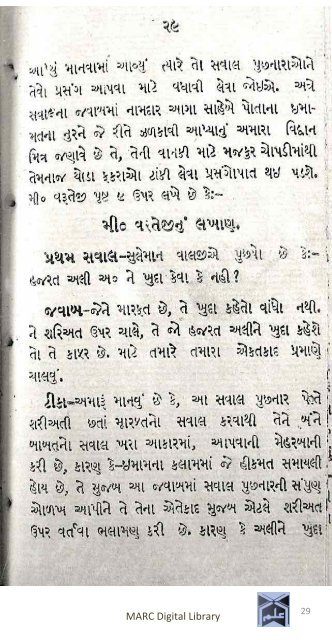 ૨૯
આપ્યું માનવામાં આવ્યું ત્યારે તેા સવાલ પુછનારાઓને
તેવેા પ્રસંગ આપવા માટે વધાવી લેવા જોઇએ. અત્રે
સવાલના જવાબમાં નામદાર આગા સાહેબે પોતાના ઇમા-
મતના નુરને જે રીતે ઝળકાવી આપ્યાનું અમારા વિદ્વાન
મિત્ર જણાવે છે તે, તેની વાનકી માટે મજકુર ચોપડીમાંથી
તેમનાજ થોડા ફકરાઓ ટાંકી લેવા પ્રસંગોપાત થઇ પડશે.
મી૦ વરતેજી પૃષ્ટ ૯ ઉપર લખે છે કેઃ–
મી૦ વરતેજીનું લખાણ.
પ્રથમ સવાલ–સુલેમાન વાલજીએ પુછ્યો છે કેઃ–
હજરત અલી અ૦ ને ખુદા કેવા કે નહી?
જવાબ–જેને મારફત છે, તે ખુદા કહેતેા વાંધેા નથી.
ને શરિઅત ઉપર ચાલે, તે જો હજરત અલીને ખુદા કહેશે
તેા તે કાફર છે. માટે તમારે તમારા એકતકાદ પ્રમાણે
ચાલવું.
ટીકા–અમારૂં માનવું છે કે, આ સવાલ પુછનાર પેાતે
શરીઅતી છતાં મારફતનેા સવાલ કરવાથી તેને બંને
બાબતનેા સવાલ ખરા આકારમાં, આપવાની મેહરબાની
કરી છે, કારણ કે–ઇમામના કલામમાં જે હીકમત સમાયલી
હેાય છે, તે મુજબ આ જવાબમાં સવાલ પુછનારની સંપુણ
ઓળખ આપીને તે તેના એતેકાદ મુજબ એટલે શરીઅત
ઉપર વર્તવા ભલામણ કરી છે. કારણ કે અલીને ખુદા
MARC Digital Library
29